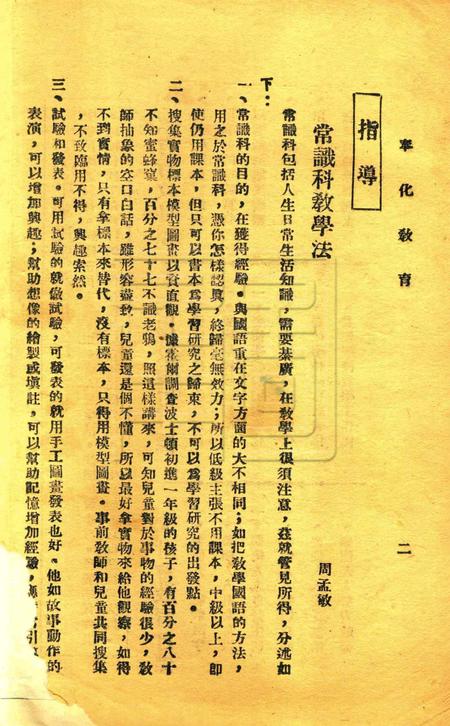 奉化教育
二
指導
常識科教學法
周孟敏
常識科包括人生日常生活知識，需要綦廣，在教學上很須注意，茲就管見所得，分述如
下：
一、常識科的目的，在獲得經驗。與國語重在文字方面的大不相同；如把教學國語的方法，
用之於常識科，憑你怎樣認真，終歸毫無效力；所以低級主張不用課本，中級以上，卽
使仍用課本，但只可以書本爲學習研究之歸束，不可以爲學習研究的出發點。
二、搜集實物標本模型圖畫以資直觀。據霍爾調查波士頓初進一年級的孩子，有百分之八十
不知蜜蜂窠，百分之七十七不識老鴉，照這樣講來，可知兒童對於事物的經驗很少，教
師抽象的空口白話，雖形容盡致，兒童還是個不懂，所以最好拿實物來給他觀察，如得
不到實情，只有拿標本來替代，沒有標本，只得用模型圖畫。事前教師和兒童共同搜集
，不致臨用不得，興趣索然。
三、試驗和發表。可用試驗的就做試驗，可發表的就用手工圖畫發表也好。他如故事動作的
表演，可以增加興趣；幫助想像的繪製或塡註，可以幫助記憶增加經驗，引